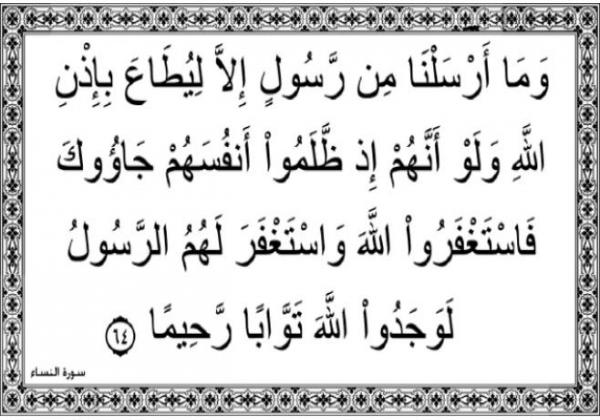 وَمَا أَرْسَلْنَا مِن رَّسُولٍ إِلاَّ لِيُطَاعَ بِإِذْنِ
اللَّهِ وَلَوْ أَنَّهُمْ إِذ ظَّلَمُواْ أَنفُسَهُمْ جَاؤُوكَ
فَاسْتَغْفَرُواْ اللَّهَ وَاسْتَغْفَرَ لَهُمُ الرَّسُولُ
لَوَجَدُواْ اللَّهَ تَوَّابًا رَّحِيمًا ٦٤
سورة النساء